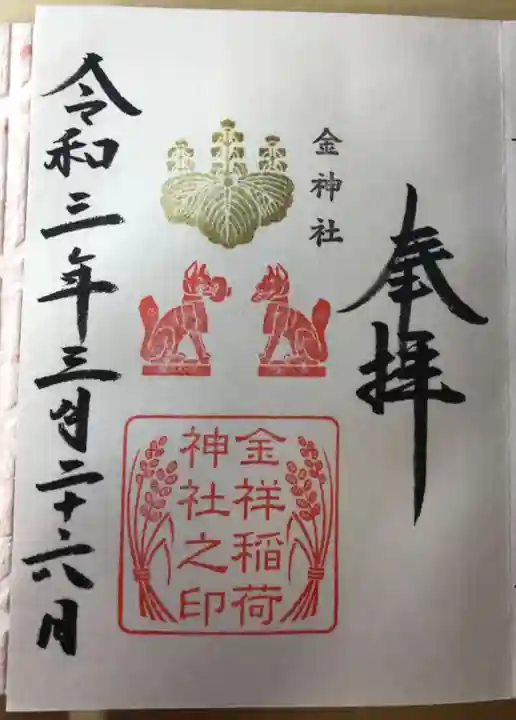 奉拝
金神社
金祥稲荷
神社之印
令和三年三月二十六日